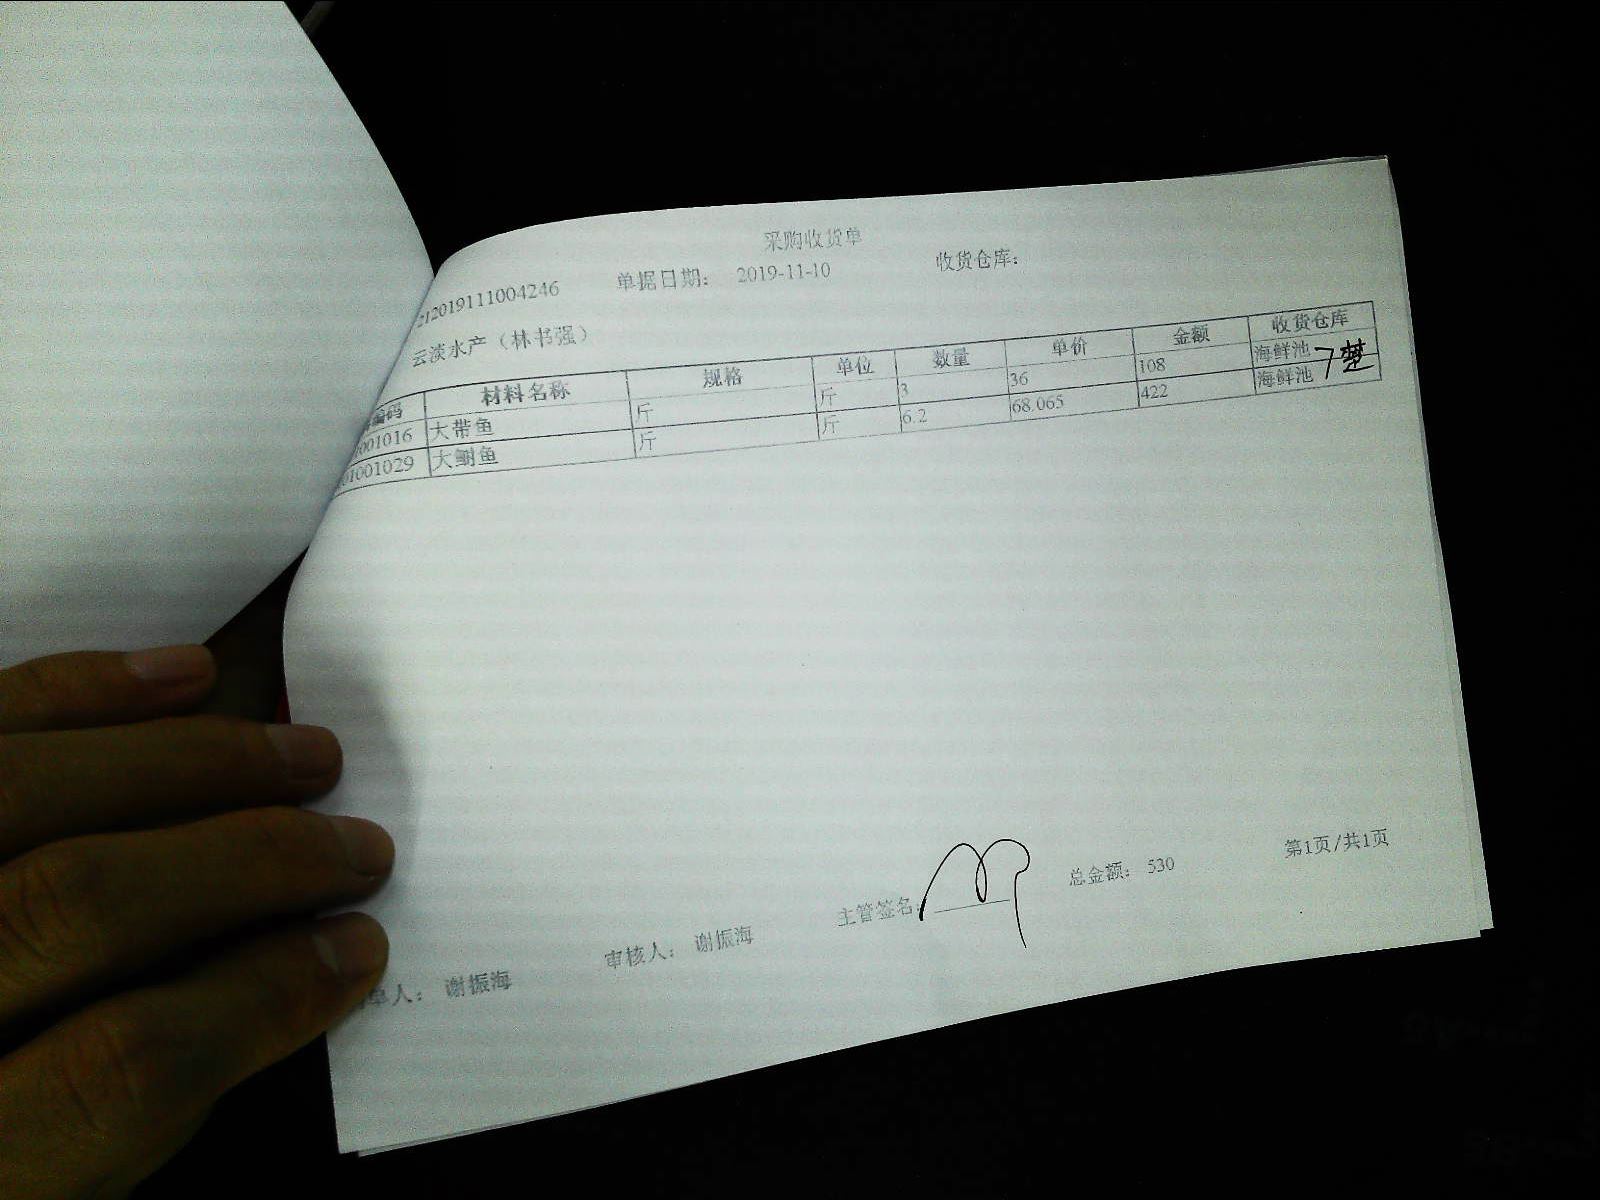 采购收货单
212019111004246 单据日期： 2019-11-10 收货仓库：
云淡水产（林书强）
编码 材料名称 规格 单位 数量 单价 金额 收货仓库
001016 大带鱼 斤 斤 3 36 108 海鲜池
01001029 大鮰鱼 斤 斤 6.2 68.065 422 海鲜池
单人： 谢振海 审核人： 谢振海 主管签名： 总金额： 530 第1页/共1页